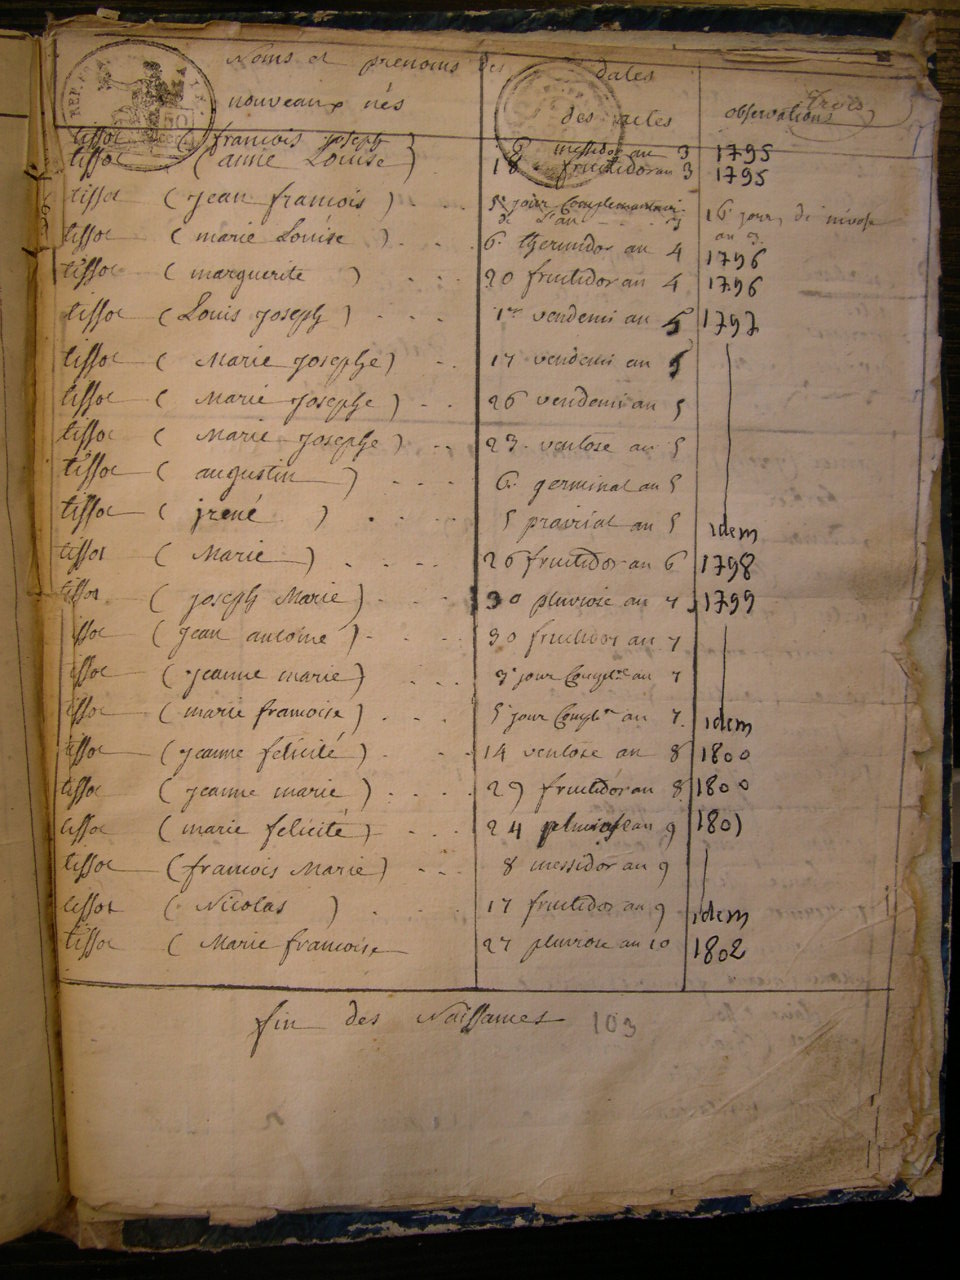 Noms et prenoms des nouveaux nés
dates des actes
observations
trois
REP. FRA.
tissot ( francois joseph ) 8 messidor an 3 1795
tissot ( anne Louise ) 18 fructidor an 3 1795
tissot ( jean francois ) . . . 5e jour Complementaire de l'an 3 16 jour, di nivose an 3
tissot ( marie Louise ) . . . 6. thermidor an 4 1796
tissot ( marguerite ) . . . 20 fructidor an 4 1796
tissot ( Louis joseph ) . . . . 1er vendemi an 5 1797
tissot ( Marie josephe ) . . 17 vendemi an 5
tissot ( Marie josephe ) . . 26 vendemi an 5
tissot ( Marie josephe ) . . 23 ventose an 5
tissot ( augustin ) . . . . 6. germinal an 5
tissot ( jrené ) . . . . 5 prairial an 5 idem
tissot ( Marie ) . . . . 26 fructidor an 6 1798
tissot ( joseph Marie ) . . . . 30 pluviose an 7 1799
tissot ( jean antoine ) . . . . 30 fructidor an 7
tissot ( jeanne marie ) . . . 3e jour Complre an 7
tissot ( marie francoise ) . . . 5e jour Complre an 7. idem
tissot ( jeanne felicité ) . . . 14 ventose an 8 1800
tissot ( jeanne marie ) . . . . 29 fructidor an 8 1800
tissot ( marie felicité ) . . . 24 pluviose an 9 1801
tissot ( francois Marie ) . . . 8 messidor an 9
tissot ( Nicolas ) . . . 17 fructidor an 9 idem
tissot ( Marie francoise 27 pluviose an 10 1802
fin des Naissances 103